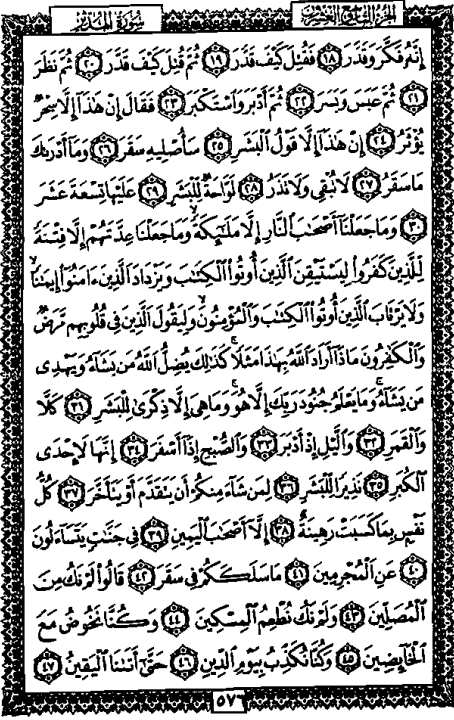 الجزء التاسع والعشرون
سورة المدثر
إِنَّهُۥ فَكَّرَ وَقَدَّرَ ١٨ فَقُتِلَ كَيْفَ قَدَّرَ ١٩ ثُمَّ قُتِلَ كَيْفَ قَدَّرَ ٢٠ ثُمَّ نَظَرَ
٢١ ثُمَّ عَبَسَ وَبَسَرَ ٢٢ ثُمَّ أَدْبَرَ وَٱسْتَكْبَرَ ٢٣ فَقَالَ إِنْ هَٰذَآ إِلَّا سِحْرٌ
يُؤْثَرُ ٢٤ إِنْ هَٰذَآ إِلَّا قَوْلُ ٱلْبَشَرِ ٢٥ سَأُصْلِيهِ سَقَرَ ٢٦ وَمَآ أَدْرَىٰكَ
مَا سَقَرُ ٢٧ لَا تُبْقِى وَلَا تَذَرُ ٢٨ لَوَّاحَةٌ لِّلْبَشَرِ ٢٩ عَلَيْهَا تِسْعَةَ عَشَرَ
٣٠ وَمَا جَعَلْنَآ أَصْحَٰبَ ٱلنَّارِ إِلَّا مَلَٰٓئِكَةً ۙ وَمَا جَعَلْنَا عِدَّتَهُمْ إِلَّا فِتْنَةً
لِّلَّذِينَ كَفَرُوا۟ لِيَسْتَيْقِنَ ٱلَّذِينَ أُوتُوا۟ ٱلْكِتَٰبَ وَيَزْدَادَ ٱلَّذِينَ ءَامَنُوٓا۟ إِيمَٰنًا ۙ
وَلَا يَرْتَابَ ٱلَّذِينَ أُوتُوا۟ ٱلْكِتَٰبَ وَٱلْمُؤْمِنُونَ ۙ وَلِيَقُولَ ٱلَّذِينَ فِى قُلُوبِهِم مَّرَضٌ
وَٱلْكَٰفِرُونَ مَاذَآ أَرَادَ ٱللَّهُ بِهَٰذَا مَثَلًا ۚ كَذَٰلِكَ يُضِلُّ ٱللَّهُ مَن يَشَآءُ وَيَهْدِى
مَن يَشَآءُ ۚ وَمَا يَعْلَمُ جُنُودَ رَبِّكَ إِلَّا هُوَ ۚ وَمَا هِىَ إِلَّا ذِكْرَىٰ لِلْبَشَرِ ٣١ كَلَّا
وَٱلْقَمَرِ ٣٢ وَٱلَّيْلِ إِذْ أَدْبَرَ ٣٣ وَٱلصُّبْحِ إِذَآ أَسْفَرَ ٣٤ إِنَّهَا لَإِحْدَى
ٱلْكُبَرِ ٣٥ نَذِيرًا لِّلْبَشَرِ ٣٦ لِمَن شَآءَ مِنكُمْ أَن يَتَقَدَّمَ أَوْ يَتَأَخَّرَ ٣٧ كُلُّ
نَفْسٍۭ بِمَا كَسَبَتْ رَهِينَةٌ ٣٨ إِلَّآ أَصْحَٰبَ ٱلْيَمِينِ ٣٩ فِى جَنَّٰتٍ يَتَسَآءَلُونَ
٤٠ عَنِ ٱلْمُجْرِمِينَ ٤١ مَا سَلَكَكُمْ فِى سَقَرَ ٤٢ قَالُوا۟ لَمْ نَكُ مِنَ
ٱلْمُصَلِّينَ ٤٣ وَلَمْ نَكُ نُطْعِمُ ٱلْمِسْكِينَ ٤٤ وَكُنَّا نَخُوضُ مَعَ
ٱلْخَآئِضِينَ ٤٥ وَكُنَّا نُكَذِّبُ بِيَوْمِ ٱلدِّينِ ٤٦ حَتَّىٰٓ أَتَىٰنَا ٱلْيَقِينُ ٤٧
٥٧٦